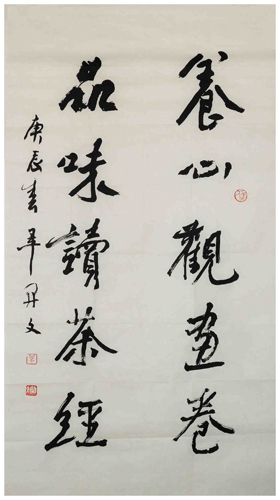 養心觀畫卷
品味讀茶經
庚辰春羋開文